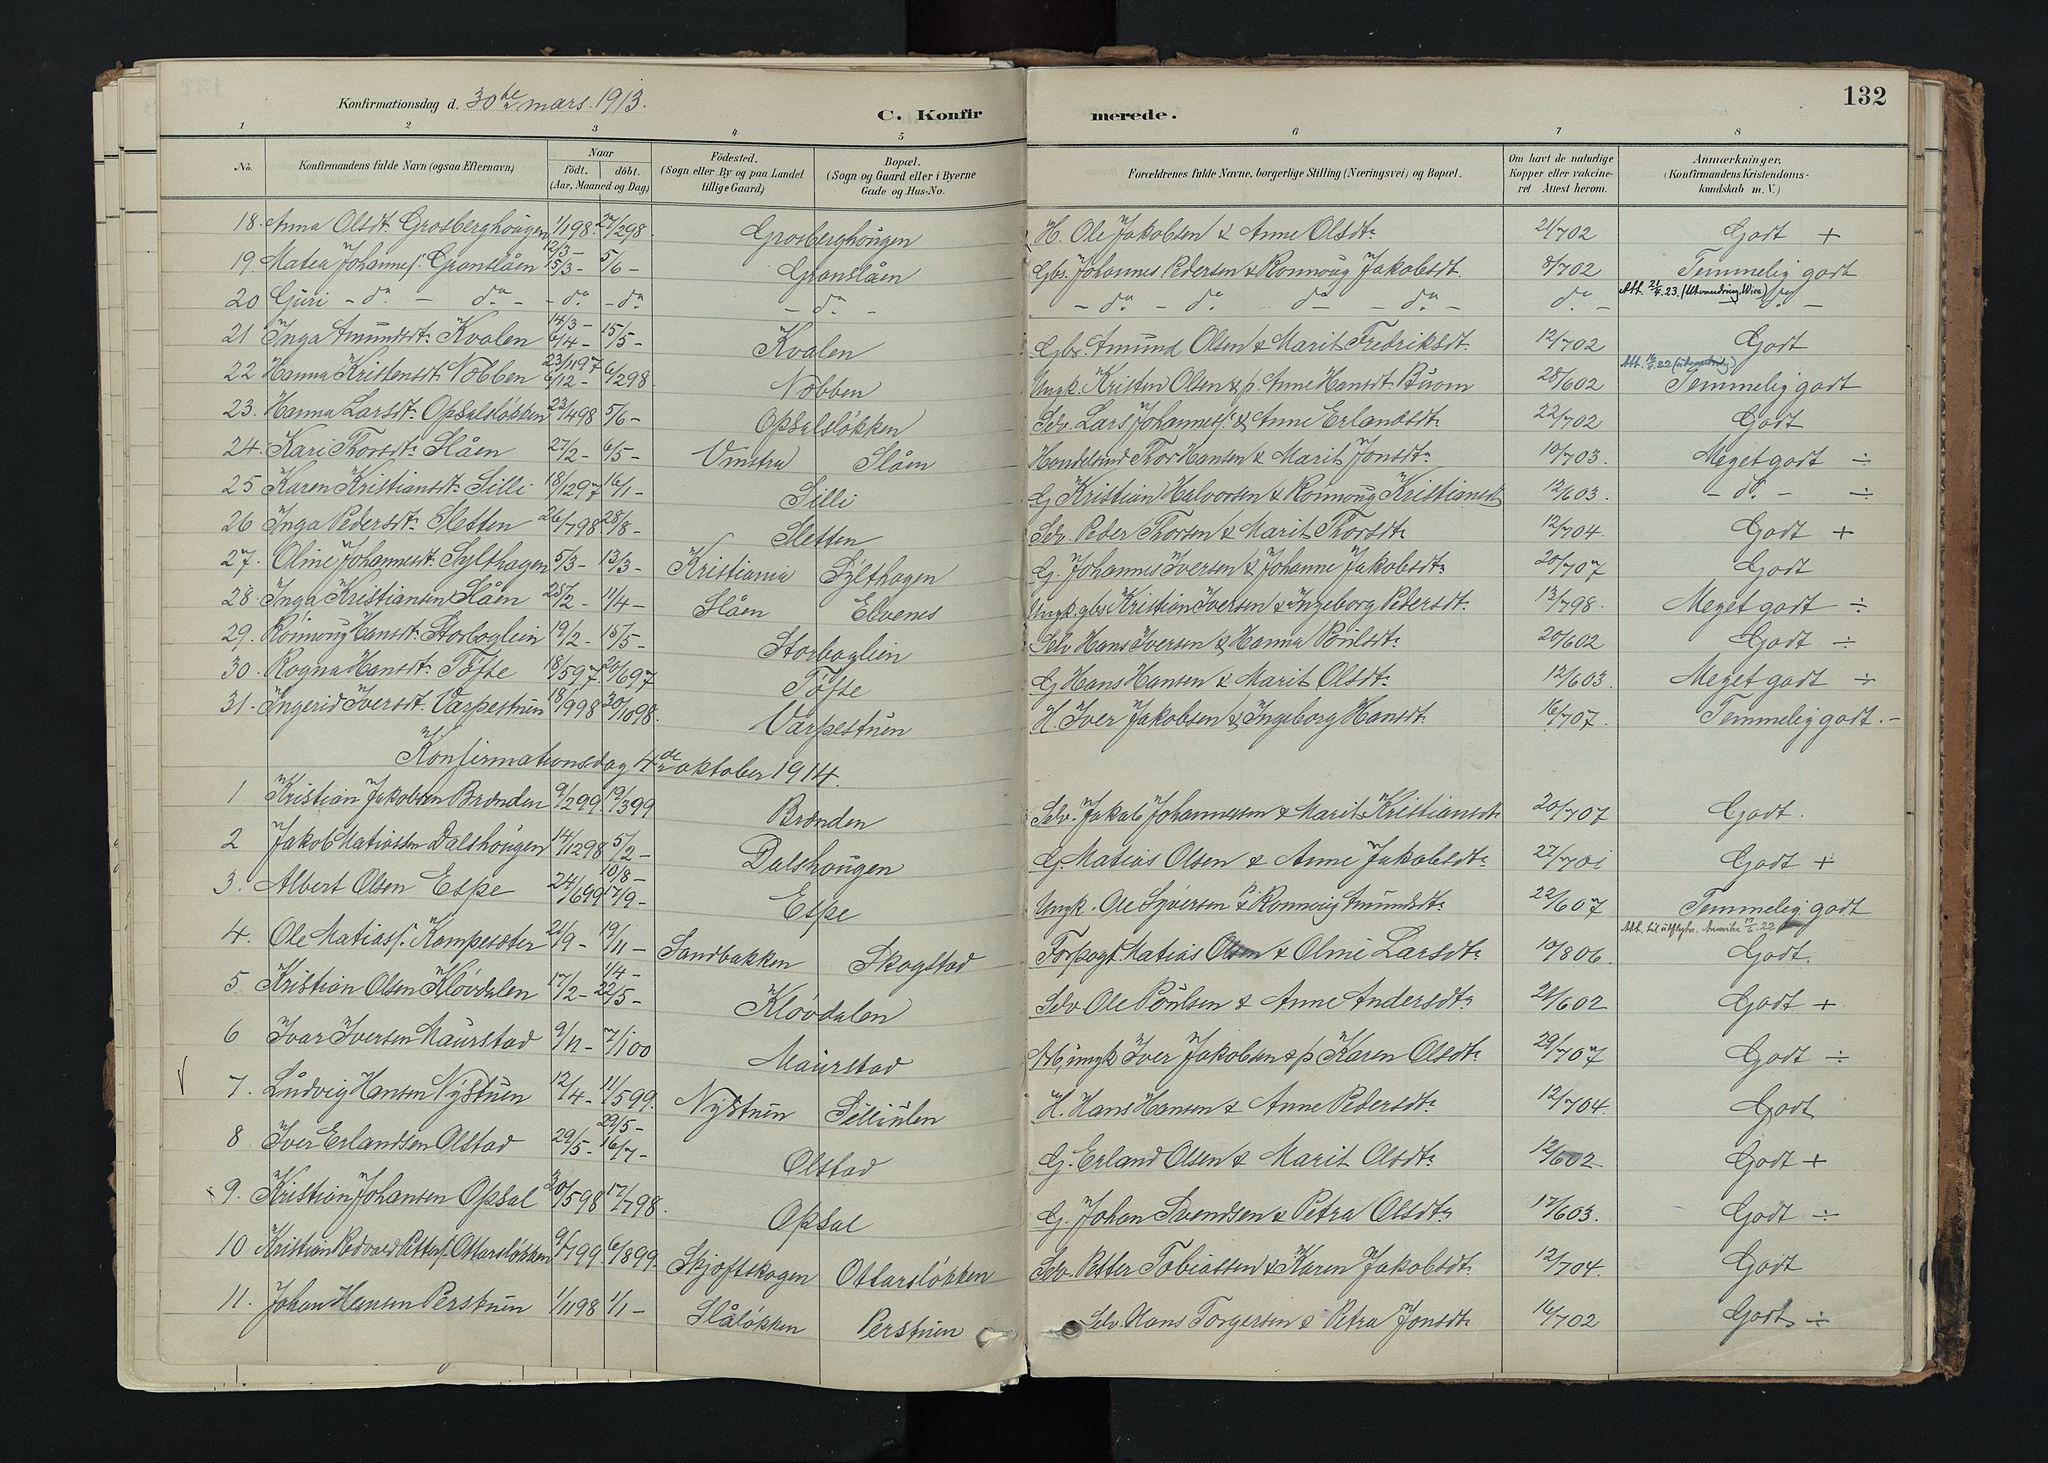 132
Konfirmationsdag d. 30de mars. 1913.
C. Konfirmerede.
1 2 3 4 5 6 7 8
No. Konfirmandens fulde Navn (ogsaa Efternavn) Naar födt. döbt. (Aar, Maaned og Dag) Födested. (Sogn eller By og paa Landet tillige Gaard) Bopæl. (Sogn og Gaard eller i Byerne Gade og Hus-No. Forældrenes fulde Navne, borgerlige Stilling (Næringsvei) og Bopæl. Om havt de naturlige Kopper eller vakcineret Attest herom. Anmærkninger. (Konfirmandens Kristendomskundskab m. V.)
18. Anna Olsdtr Grosberghougen 1/1 98. 27/2 98. Grosberghougen H. Ole Jakobsen & Anne Olsdtr 21/7 02 Godt +
19. Matea Johannes. Granslåen 12/3 – 15/3 – 5/6 – Granslåen Gbr. Johannes Pedersen & Ronnoug Jakobsdtr 8/7 02 Temmelig godt
20 Guri – da – da – – da – da – da – – da – da da – da – da – Att. 23. (Utvandring) da –
21 Inga Amundsdtr Kvalen 14/3 – 6/4 – 15/5 – Kvalen Gbr. Amund Olsen & Marit Fredriksdtr 12/7 02 Godt
22 Hanna Kristensdtr Nobben 23/11 97 6/12 – 6/2 98 Nobben Ungk. Kristen Olsen & p. Anne Hansdtr 28/6 02 Temmelig godt
23. Hanna Larsdtr Opsalsløkken 23/4 98 5/6 – Opsalsløkken Selv. Lars Johanness. & Anne Erlandsdtr 22/7 02 Godt
24. Kari Thorsdtr Slåen 27/2 – 6/5 – Vinstra Slåen Handelsmd Thor Hansen & Marit Jonsdtr 10/7 03. Meget godt ÷
25 Karen Kristiansdtr Silli 18/12 97 16/1 – Silli G. Kristian Halvorsen & Ronnoug Kristiansd 12/6 03. – do. – ÷
26 Inga Pedersdtr Sletten 26/7 98 28/8 – Sletten Selv. Peder Thorsen & Marit Thorsdtr 12/7 04. Godt +
27. Oline Johannesdt. Sylthagen 5/3 – 13/3 – Kristiania Sylthagen G. Johannes Iversen & Johanne Jakobsdtr 20/7 07 Godt
28. Inga Kristiansen Slåen 25/2 – 11/4 – Slåen Elvenes Ungk. gbr. Kristian Iversen & Ingeborg Pedersdtr 13/7 98. Meget godt ÷
29. Rønnoug Hansdtr Storboglien 19/2 – 15/5 – Storboglien Selv Hans Iversen & Hanna Poulsdtr 20/6 02 Godt ÷
30. Rogna Hansdtr Tofte 18/5 97. 20/6 97 Tofte G Hans Hansen & Marit Olsdtr 12/6 03. Meget godt ÷
31. Ingerid Iversdt. Varpestuen 18/9 98 30/10 98. Varpestuen H. Iver Jakobsen & Ingeborg Hansdtr 16/7 07. Temmelig godt. –
Konfirmationsdag 4de oktober 1914.
1 Kristian Jakobsen Brænden 9/2 99 19/3 99 Brænden Selv. Jakob Johannessen & Marit Kristiansdtr 20/7 07 Godt.
2 Jakob Matiassen Dalshougen 14/12 98 5/2 – Dalshougen G. Matias Olsen & Anne Jakobsdtr 27/7 01 Godt +
3. Albert Olsen Espe 24/6 99 10/8 – 17/9 – Espe Ungk. Ole Syversen & p. Ronnoug Amundsdtr 22/6 07 Temmelig godt
4. Ole Matiass. Kampesæter 21/9 – 19/11 – Sandbakken Skogstad Forpagt. Matias Olsen & Oline Larsdtr 10/8 06. Att. til utflytn. Amerika 22 Godt.
5 Kristian Olsen Kløvdalen 17/2 – 1/4 – 22/5 – Kløvdalen Selv Ole Poulsen & Anne Andersdtr 21/6 02 Godt +
6 Ivar Iversen Maurstad 9/11 – 7/1 00 Maurstad ungk Iver Jakobsen & p Karen Olsdtr 29/7 07 Godt ÷
7. Ludvig Hansen Nystuen 12/4 – 11/5 99. Nystuen H. Hans Hansen & Anne Pedersdtr 12/7 04. Godt
8 Iver Erlandsen Olstad 29/5 – 29/5 – 16/7 – Olstad G. Erland Olsen & Marit Olsdtr 12/6 02 Godt +
9. Kristian Johansen Opsal 20/5 98 17/7 98. Opsal G. Johan Svendsen & Petra Olsdtr 17/6 03. Godt ÷
10 Kristian Redvald Petters. Ottarsløkken 9/7 99 6/8 99. Skjeftskogen Ottarsløkken Selv. Petter Tobiassen & Karen Jakobsdtr 12/7 04. Godt
11. Johan Hansen Perstuen 1/11 98 1/1 – Slåløkken Perstuen Selv. Hans Torgersen & Petra Jonsdtr 16/7 02 Godt ÷